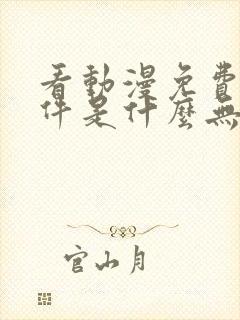 看動漫免費
件是什麼無
官山月